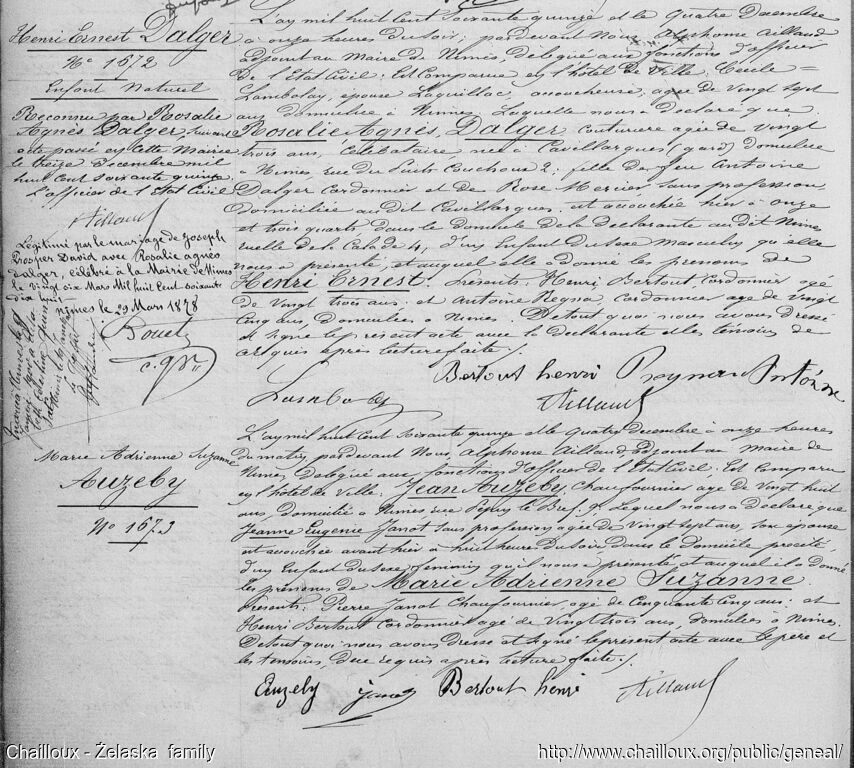 Henri Ernest Dalger
N° 1672
Enfant Naturel
Reconnue par Rosalie
Agnès Dalger, suivant
acte passé en cette Mairie
le treize Decembre mil
huit cent soixante quinze
L'officier de l'Etat Civil
Aillaud
Légitimé par le mariage de Joseph
Prosper David avec Rosalie agnès
dalger, célébré à la Mairie de Nimes
le vingt six Mars Mil huit Cent soixante
dix huit
nimes le 29 Mars 1878
L'an mil huit cent soixante quinze et le quatre Decembre
à onze heures du soir; pardevant Nous, Alphonse Aillaud
adjoint au Maire de Nimes, délégué aux fonctions d'officier
De l'Etat Civil: Est Comparue en l'hôtel de Ville, Cecile
Lambolay, épouse Laquillac, accoucheuse, agée de vingt sept
ans domiciliée à Nimes, Laquelle nous a déclaré que
Rosalie, Agnès, Dalger couturiere agée de vingt
trois ans, Célibataire née à Cavillargues (gard) domiciliée
à Nimes, rue du Puits Couchoux 2; fille de feu Antoine
Dalger Cordonnier et de Rose Mercier sans profession
domiciliée audit Cavillargues. est accouchée hier à onze
et trois quarts dans le domicile de la déclarante audit Nimes
ruelle de la Calade 4, d'un Enfant du sexe Masculin qu'elle
nous a présenté, et auquel elle a donné les prénoms de
Henri Ernest. Présents: Henri Bertout, Cordonnier agé
de vingt trois ans: et Antoine Reyna, Cordonnier agé de vingt
Cinq ans, domiciliés à Nimes. De tout quoi nous avons Dressé
et signé le présent acte avec la déclarante et les témoins de
ce requis après lecture faite.
Bertout henri Antoine
Lambolay Aillaud
Marie Adrienne Suzanne
Auzeby
N° 1673
L'an mil huit cent soixante quinze et le quatre decembre à onze heures
du matin, pardevant Nous, Alphonse Aillaud, Adjoint au Maire de
Nimes, délégué aux fonctions d'officier de l'Etat Civil: Est Comparu
en l'hôtel de Ville: Jean Auzeby, Chaufournier agé de Vingt huit
ans, domicilié à Nimes rue Pépin le Bref. 9. Lequel nous a déclaré que
Jeanne Eugenie Janot sans profession agée de Vingt sept ans, son épouse
est accouchée avant hier à huit heures du soir dans le domicile precité,
d'un Enfant du sexe feminin qu'il nous a présenté et auquel il a donné
les prénoms de Marie Adrienne Suzanne.
Présents: Pierre Janot Chaufournier, agé de Cinquante Cinq ans: et
Henri Bertout Cordonnier agé de Vingt trois ans, domiciliés à Nimes.
De tout quoi nous avons Dressé et signé le présent acte avec le pere et
les témoins, de ce requis après lecture faite.
Auzeby Janot Bertout henri Aillaud
Chailloux - Żelaska family
http://www.chailloux.org/public/geneal/